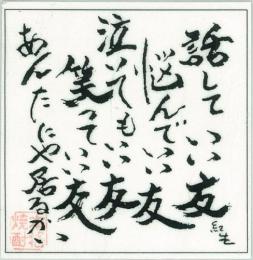 話していい友
悩んでいい友
泣いてもいい友
笑っていい友、
あんたにや居るか、